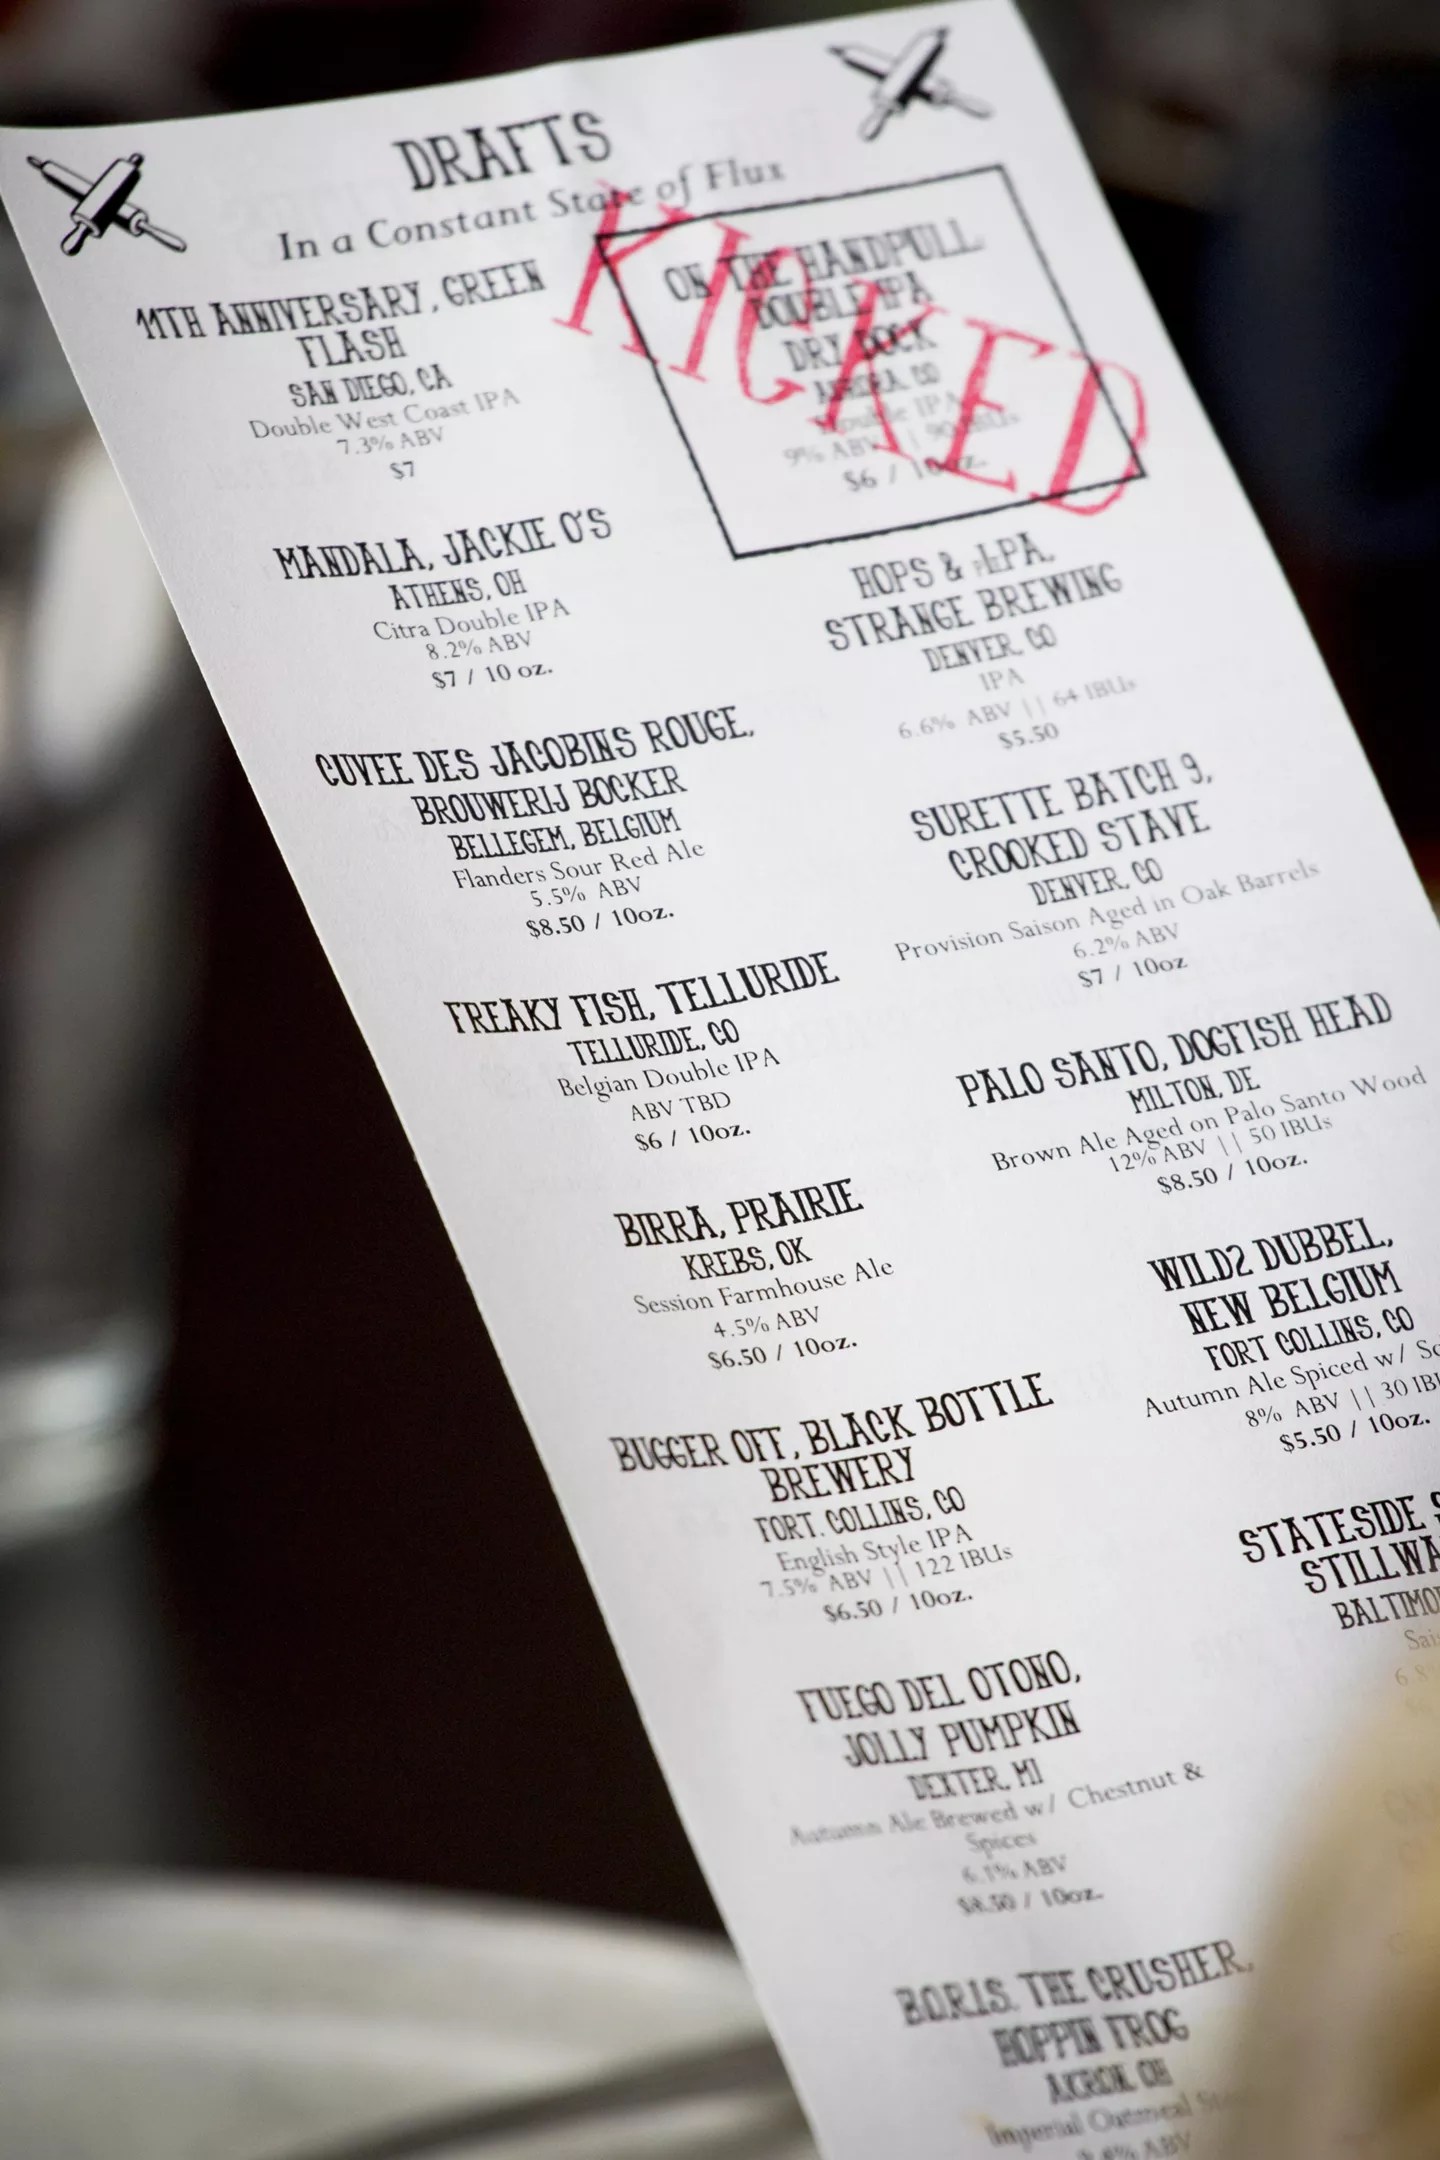 DRAFTS
In a Constant State of Flux
11TH ANNIVERSARY, GREEN
FLASH
SAN DIEGO, CA
Double West Coast IPA
7.3% ABV
$7
MANDALA, JACKIE O'S
ATHENS, OH
Citra Double IPA
8.2% ABV
$7 / 10 oz.
CUVEE DES JACOBINS ROUGE,
BROUWERIJ BOCKER
BELLEGEM, BELGIUM
Flanders Sour Red Ale
5.5% ABV
$8.50 / 10oz.
FREAKY FISH, TELLURIDE
TELLURIDE, CO
Belgian Double IPA
ABV TBD
$6 / 10oz.
BIRRA, PRAIRIE
KREBS, OK
Session Farmhouse Ale
4.5% ABV
$6.50 / 10oz.
BUGGER OFF, BLACK BOTTLE
BREWERY
FORT. COLLINS, CO
English Style IPA
7.5% ABV || 122 IBUs
$6.50 / 10oz.
FUEGO DEL OTONO,
JOLLY PUMPKIN
DEXTER, MI
Autumn Ale Brewed w/ Chestnut &
Spices
6.1% ABV
$8.50 / 10oz.
B.O.R.I.S. THE CRUSHER,
HOPPIN FROG
AKRON, OH
Imperial Oatmeal
ABV
KICKED
ON THE HANDPULL
DOUBLE IPA
DRY DOCK
AURORA, CO
Double IPA
9% ABV || 90 IBUs
$6 / 10 oz.
HOPS &
STRANGE BREWING
DENVER, CO
IPA
6.6% ABV || 64 IBUs
$5.50
SURETTE BATCH 9,
CROOKED STAVE
DENVER, CO
Provision Saison Aged in Oak Barrels
6.2% ABV
$7 / 10oz
PALO SANTO, DOGFISH HEAD
MILTON, DE
Brown Ale Aged on Palo Santo Wood
12% ABV || 50 IBUs
$8.50 / 10oz.
WILD2 DUBBEL,
NEW BELGIUM
FORT COLLINS, CO
Autumn Ale Spiced w/
8% ABV || 30 IBU
$5.50 / 10oz.
STATESIDE
STILLWA
BALTIMO
Sai
6.8